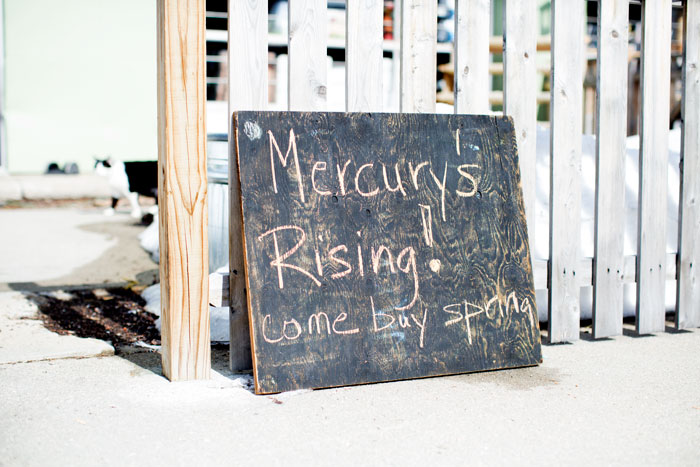 Mercury's
Rising!
come buy spring